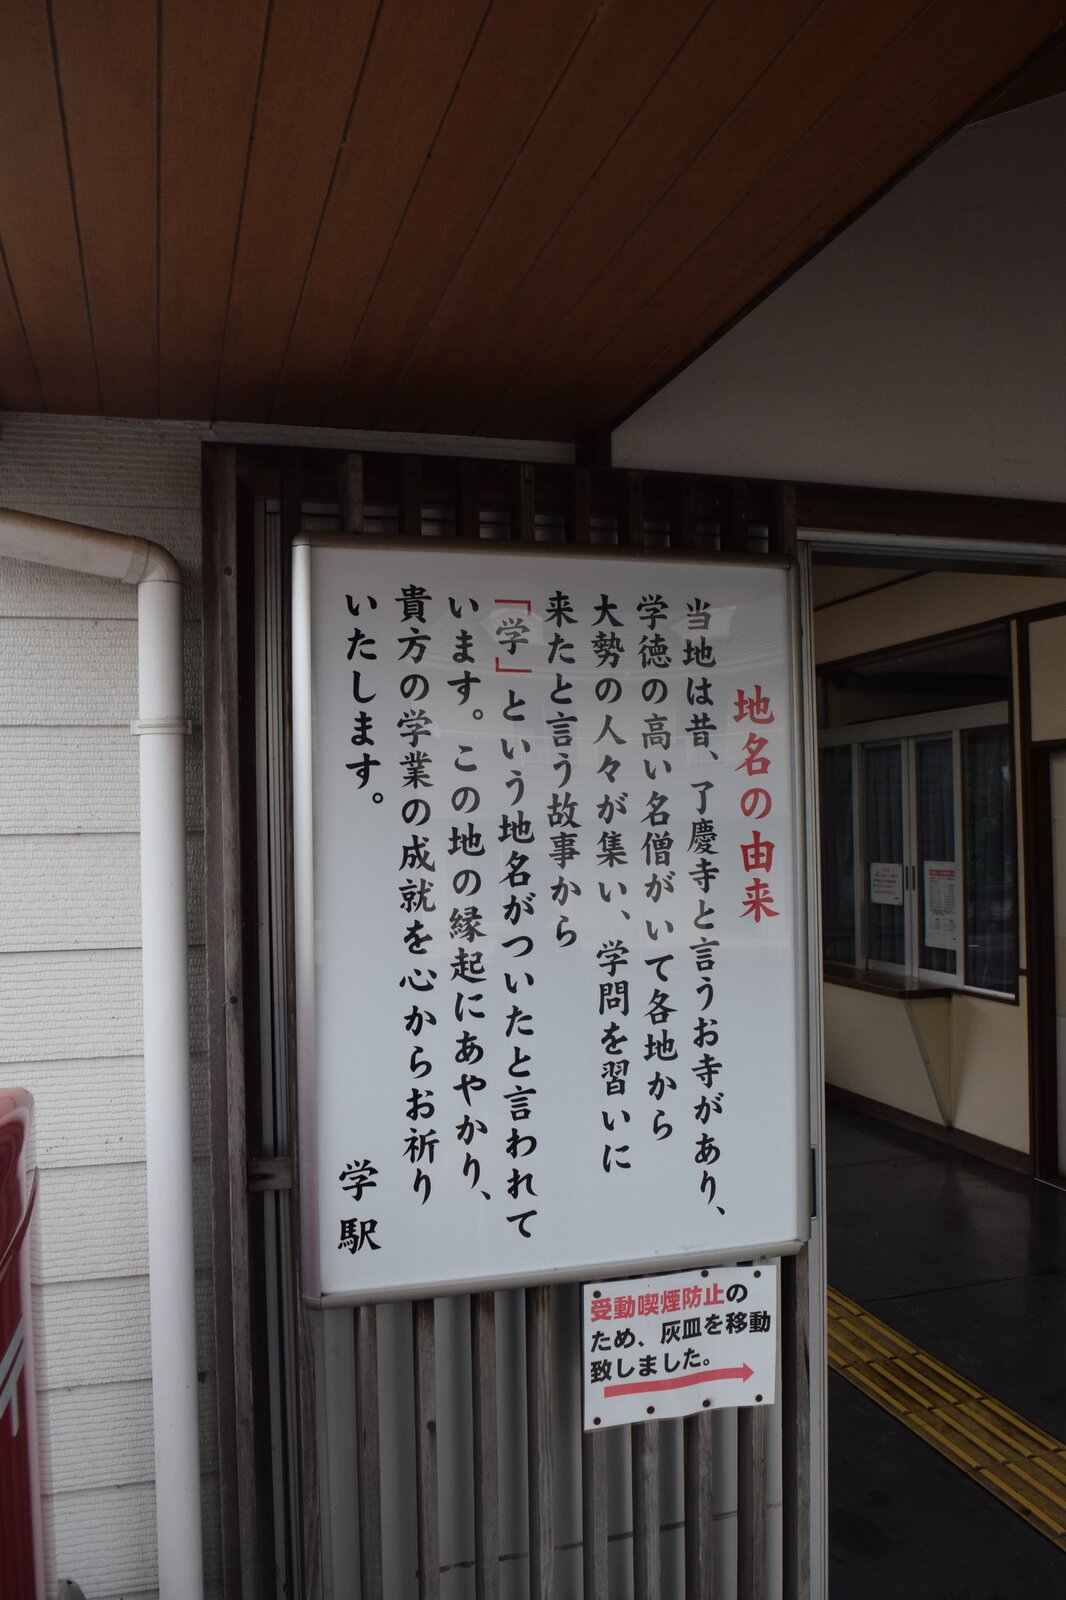 地名の由来
当地は昔、了慶寺と言うお寺があり、
学徳の高い名僧がいて各地から
大勢の人々が集い、学問を習いに
来たと言う故事から
「学」という地名がついたと言われて
います。この地の縁起にあやかり、
貴方の学業の成就を心からお祈り
いたします。
学駅
受動喫煙防止の
ため、灰皿を移動
致しました。